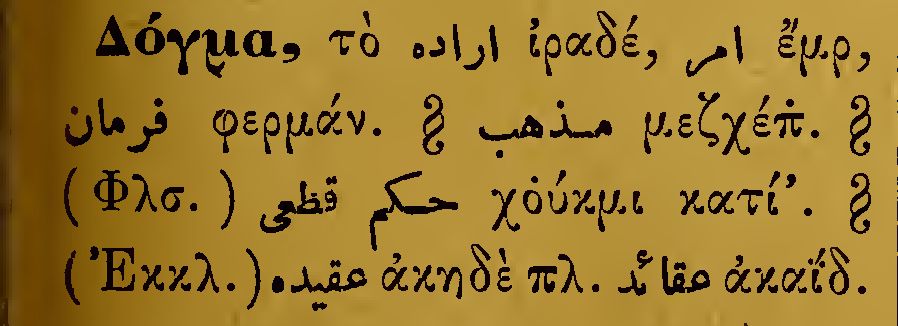 Δόγμα, τὸ اراده ἰραδέ, امر ἔμρ,
فرمان φερμάν. § مذهب μεζχέπ̇. §
(Φλσ.) حكم قطعی χὀύκμι κατί’. §
(Ἐκκλ.) عقیده ἀκηδὲ πλ. عقائد ἀκαΐδ.